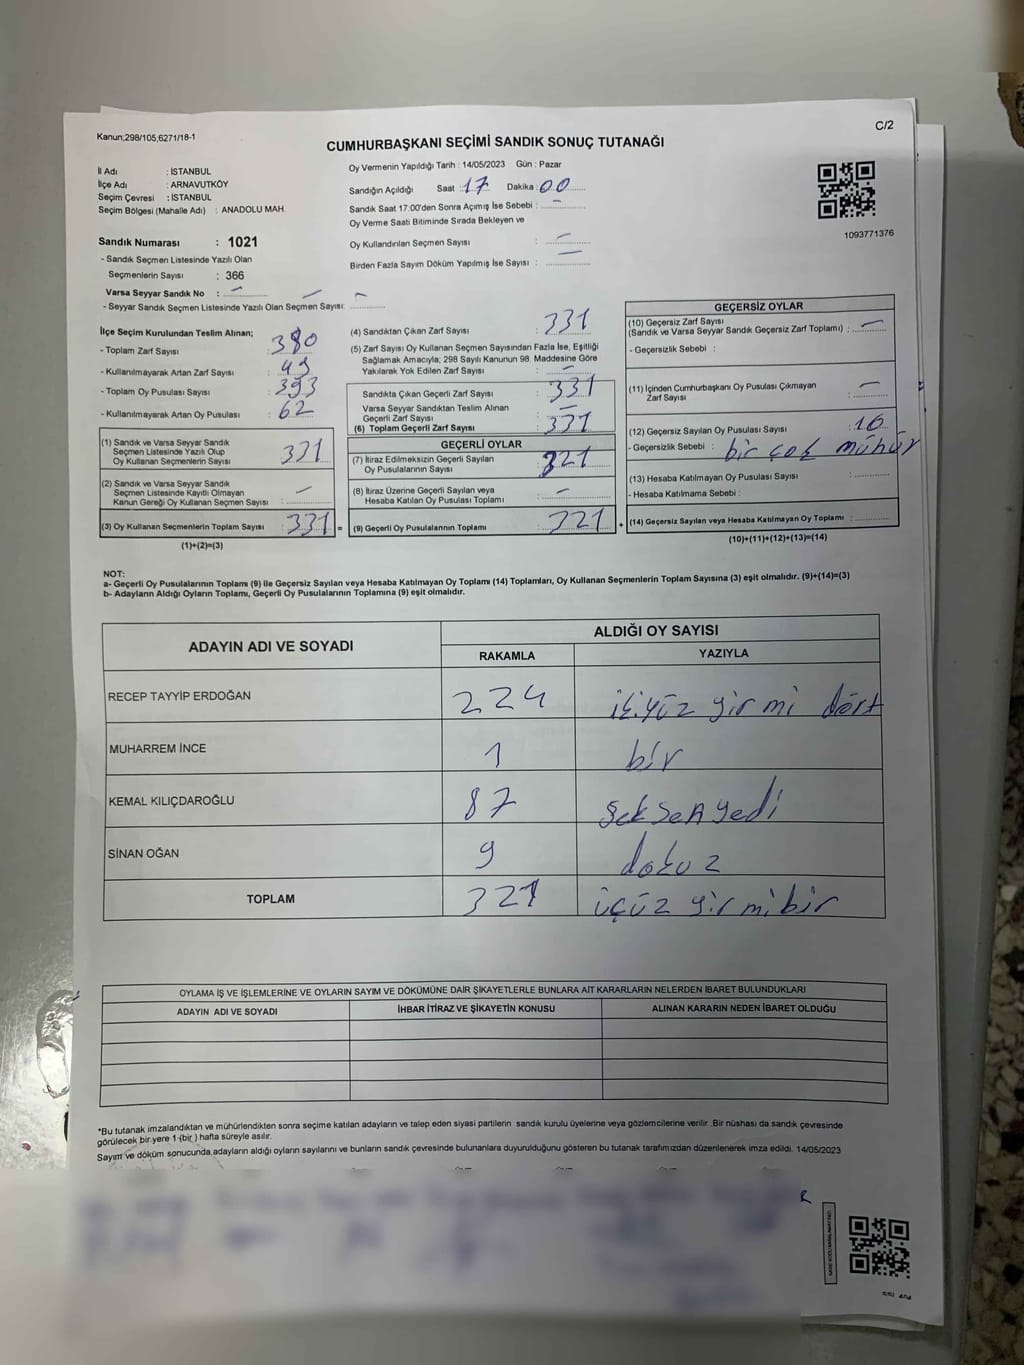 Kanun;298/105;6271/18-1
C/2
CUMHURBAŞKANI SEÇİMİ SANDIK SONUÇ TUTANAĞI
İl Adı : İSTANBUL
İlçe Adı : ARNAVUTKÖY
Seçim Çevresi : İSTANBUL
Seçim Bölgesi (Mahalle Adı) : ANADOLU MAH.
Sandık Numarası : 1021
- Sandık Seçmen Listesinde Yazılı Olan
Seçmenlerin Sayısı : 366
Varsa Seyyar Sandık No : –
- Seyyar Sandık Seçmen Listesinde Yazılı Olan Seçmen Sayısı: –
Oy Vermenin Yapıldığı Tarih : 14/05/2023 Gün : Pazar
Sandığın Açıldığı Saat : 17 Dakika : 00
Sandık Saat 17:00'den Sonra Açımış İse Sebebi : –
Oy Verme Saati Bitiminde Sırada Bekleyen ve
Oy Kullandırılan Seçmen Sayısı : –
Birden Fazla Sayım Döküm Yapılmış İse Sayısı : –
1093771376
İlçe Seçim Kurulundan Teslim Alınan;
- Toplam Zarf Sayısı : 380
- Kullanılmayarak Artan Zarf Sayısı : 49
- Toplam Oy Pusulası Sayısı : 393
- Kullanılmayarak Artan Oy Pusulası : 62
(1) Sandık ve Varsa Seyyar Sandık
Seçmen Listesinde Yazılı Olup
Oy Kullanan Seçmenlerin Sayısı : 331
(2) Sandık ve Varsa Seyyar Sandık
Seçmen Listesinde Kayıtlı Olmayan
Kanun Gereği Oy Kullanan Seçmen Sayısı : –
(3) Oy Kullanan Seçmenlerin Toplam Sayısı : 331 =
(1)+(2)=(3)
(4) Sandıktan Çıkan Zarf Sayısı : 331
(5) Zarf Sayısı Oy Kullanan Seçmen Sayısından Fazla İse, Eşitliği
Sağlamak Amacıyla; 298 Sayılı Kanunun 98. Maddesine Göre
Yakılarak Yok Edilen Zarf Sayısı : –
Sandıkta Çıkan Geçerli Zarf Sayısı : 331
Varsa Seyyar Sandıktan Teslim Alınan
Geçerli Zarf Sayısı : –
(6) Toplam Geçerli Zarf Sayısı : 331
GEÇERLİ OYLAR
(7) İtiraz Edilmeksizin Geçerli Sayılan
Oy Pusulalarının Sayısı : 321
(8) İtiraz Üzerine Geçerli Sayılan veya
Hesaba Katılan Oy Pusulası Toplamı : –
(9) Geçerli Oy Pusulalarının Toplamı : 321 +
GEÇERSİZ OYLAR
(10) Geçersiz Zarf Sayısı
(Sandık ve Varsa Seyyar Sandık Geçersiz Zarf Toplamı) : –
- Geçersizlik Sebebi :
(11) İçinden Cumhurbaşkanı Oy Pusulası Çıkmayan
Zarf Sayısı : –
(12) Geçersiz Sayılan Oy Pusulası Sayısı : 10
- Geçersizlik Sebebi : bir çok mühür
(13) Hesaba Katılmayan Oy Pusulası Sayısı :
- Hesaba Katılmama Sebebi :
(14) Geçersiz Sayılan veya Hesaba Katılmayan Oy Toplamı :
(10)+(11)+(12)+(13)=(14)
NOT:
a- Geçerli Oy Pusulalarının Toplamı (9) ile Geçersiz Sayılan veya Hesaba Katılmayan Oy Toplamı (14) Toplamları, Oy Kullanan Seçmenlerin Toplam Sayısına (3) eşit olmalıdır. (9)+(14)=(3)
b- Adayların Aldığı Oyların Toplamı, Geçerli Oy Pusulalarının Toplamına (9) eşit olmalıdır.
ADAYIN ADI VE SOYADI
ALDIĞI OY SAYISI
RAKAMLA YAZIYLA
RECEP TAYYİP ERDOĞAN 224 ikiyüz yirmi dört
MUHARREM İNCE 1 bir
KEMAL KILIÇDAROĞLU 87 seksen yedi
SİNAN OĞAN 9 dokuz
TOPLAM 321 üçüz yirmibir
OYLAMA İŞ VE İŞLEMLERİNE VE OYLARIN SAYIM VE DÖKÜMÜNE DAİR ŞİKAYETLERLE BUNLARA AİT KARARLARIN NELERDEN İBARET BULUNDUKLARI
ADAYIN ADI VE SOYADI İHBAR İTİRAZ VE ŞİKAYETİN KONUSU ALINAN KARARIN NEDEN İBARET OLDUĞU
*Bu tutanak imzalandıktan ve mühürlendikten sonra seçime katılan adayların ve talep eden siyasi partilerin sandık kurulu üyelerine veya gözlemcilerine verilir. Bir nüshası da sandık çevresinde
görülecek bir yere 1 (bir ) hafta süreyle asılır.
Sayım ve döküm sonucunda,adayların aldığı oyların sayılarını ve bunların sandık çevresinde bulunanlara duyurulduğunu gösteren bu tutanak tarafımızdan düzenlenerek imza edildi. 14/05/2023